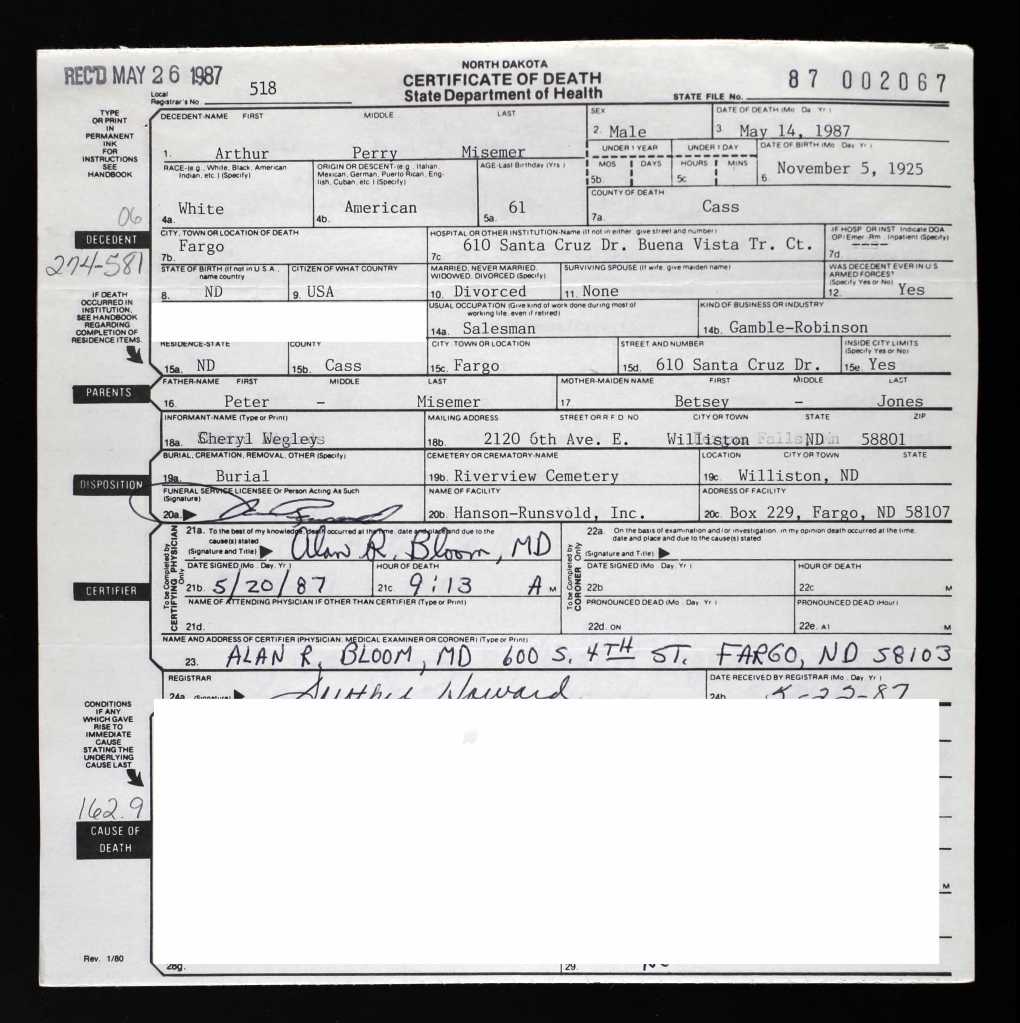 REC'D MAY 26 1987
Local Registrar's No. 518
NORTH DAKOTA
CERTIFICATE OF DEATH
State Department of Health
STATE FILE No. 87 002067
TYPE OR PRINT IN PERMANENT INK FOR INSTRUCTIONS SEE HANDBOOK
DECEDENT-NAME FIRST MIDDLE LAST
1. Arthur Perry Misemer
SEX
2. Male
DATE OF DEATH (Mo. Da. Yr.)
3. May 14, 1987
RACE-(e.g., White, Black, American Indian, etc.) (Specify)
4a. White
ORIGIN OR DESCENT-(e.g., Italian, Mexican, German, Puerto Rican, English, Cuban, etc.) (Specify)
4b. American
AGE-Last Birthday (Yrs.)
5a. 61
UNDER 1 YEAR
MOS DAYS
5b.
UNDER 1 DAY
HOURS MINS
5c
DATE OF BIRTH (Mo. Day. Yr.)
6. November 5, 1925
COUNTY OF DEATH
7a. Cass
06
DECEDENT
274-581
CITY, TOWN OR LOCATION OF DEATH
7b. Fargo
HOSPITAL OR OTHER INSTITUTION-Name (If not in either, give street and number)
7c 610 Santa Cruz Dr. Buena Vista Tr. Ct.
IF HOSP OR INST Indicate DOA OP/Emer. Rm., Inpatient (Specify)
7d. ----
STATE OF BIRTH (If not in U.S.A., name country)
8. ND
CITIZEN OF WHAT COUNTRY
9. USA
MARRIED, NEVER MARRIED, WIDOWED, DIVORCED (Specify)
10. Divorced
SURVIVING SPOUSE (If wife, give maiden name)
11. None
WAS DECEDENT EVER IN U.S. ARMED FORCES? (Specify Yes or No)
12. Yes
IF DEATH OCCURRED IN INSTITUTION, SEE HANDBOOK REGARDING COMPLETION OF RESIDENCE ITEMS
USUAL OCCUPATION (Give kind of work done during most of working life, even if retired)
14a. Salesman
KIND OF BUSINESS OR INDUSTRY
14b. Gamble-Robinson
RESIDENCE-STATE
15a. ND
COUNTY
15b. Cass
CITY, TOWN OR LOCATION
15c. Fargo
STREET AND NUMBER
15d. 610 Santa Cruz Dr.
INSIDE CITY LIMITS (Specify Yes or No)
15e. Yes
PARENTS
FATHER-NAME FIRST MIDDLE LAST
16. Peter - Misemer
MOTHER-MAIDEN NAME FIRST MIDDLE LAST
17 Betsey - Jones
INFORMANT-NAME (Type or Print)
18a. Cheryl Wegleys
MAILING ADDRESS STREET OR R.F.D. NO CITY OR TOWN STATE ZIP
18b. 2120 6th Ave. E. Williston ND 58801
DISPOSITION
BURIAL, CREMATION, REMOVAL, OTHER (Specify)
19a. Burial
CEMETERY OR CREMATORY-NAME
19b. Riverview Cemetery
LOCATION CITY OR TOWN STATE
19c. Williston, ND
FUNERAL SERVICE LICENSEE Or Person Acting As Such
(Signature)
20a.
NAME OF FACILITY
20b. Hanson-Runsvold, Inc.
ADDRESS OF FACILITY
20c. Box 229, Fargo, ND 58107
CERTIFIER
To be Completed by CERTIFYING PHYSICIAN Only
21a. To the best of my knowledge, death occurred at the time, date and place and due to the cause(s) stated
(Signature and Title) Alan R. Bloom, MD
To be Completed by CORONER Only
22a. On the basis of examination and/or investigation, in my opinion death occurred at the time, date and place and due to the cause(s) stated
(Signature and Title)
DATE SIGNED (Mo. Day. Yr.)
21b. 5/20/87
HOUR OF DEATH
21c. 9:13 A M
DATE SIGNED (Mo. Day. Yr.)
22b
HOUR OF DEATH
22c M
NAME OF ATTENDING PHYSICIAN IF OTHER THAN CERTIFIER (Type or Print)
21d.
PRONOUNCED DEAD (Mo. Day. Yr.)
22d. ON
PRONOUNCED DEAD (Hour)
22e. AT M
NAME AND ADDRESS OF CERTIFIER (PHYSICIAN, MEDICAL EXAMINER OR CORONER) (Type or Print)
23. ALAN R. BLOOM, MD 600 S. 4TH ST. FARGO, ND 58103
REGISTRAR
24a. (Signature)
DATE RECEIVED BY REGISTRAR (Mo. Day. Yr.)
24b.
CONDITIONS IF ANY WHICH GAVE RISE TO IMMEDIATE CAUSE STATING THE UNDERLYING CAUSE LAST
162.9
CAUSE OF DEATH
M
Rev. 1/80
28g.
29.